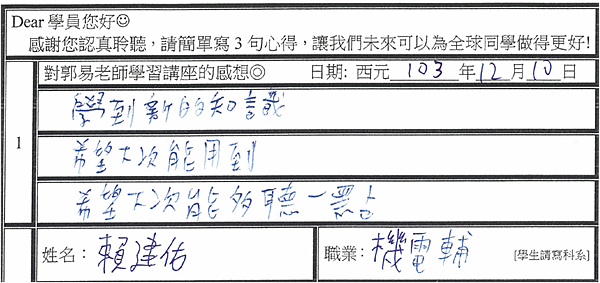 Dear 學員您好☺
感謝您認真聆聽，請簡單寫 3 句心得，讓我們未來可以為全球同學做得更好!
1 對郭易老師學習講座的感想◎ 日期: 西元 103 年 12 月 10 日
學到新的知識
希望下次能用到
希望下次能多聽一點
姓名： 賴建佑 職業： 機電輔 [學生請寫科系]